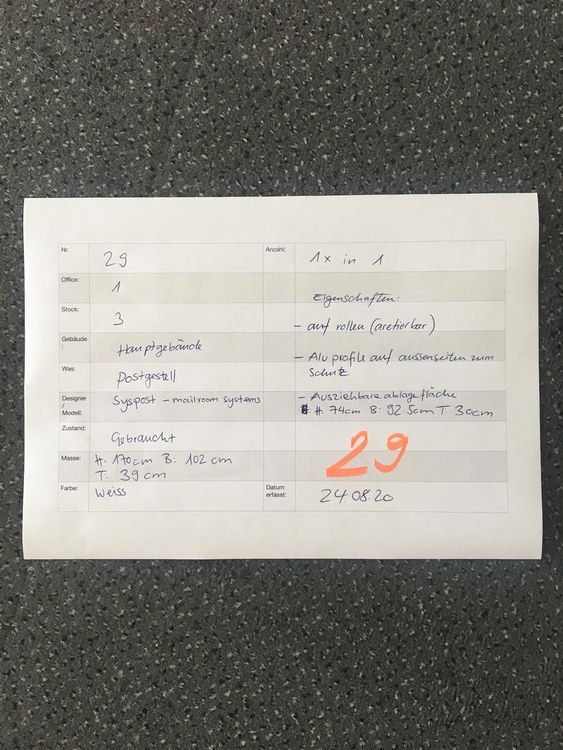 Nr. 29 Anzahl: 1x in 1
Office: 1
Eigenschaften:
Stock: 3
- auf rollen (aretierbar)
Gebäude: Hauptgebäude
- Alu profile auf aussenseiten zum
Schutz
Was: Postgestell
Designer / Modell: Syspost - mailroom systems
- Ausziehbare ablagefläche
H: 74cm B: 92.5cm T 30cm
Zustand: Gebraucht
29
Masse: H: 170cm B: 102 cm
T: 39 cm
Farbe: Weiss
Datum erfasst: 24.08.20